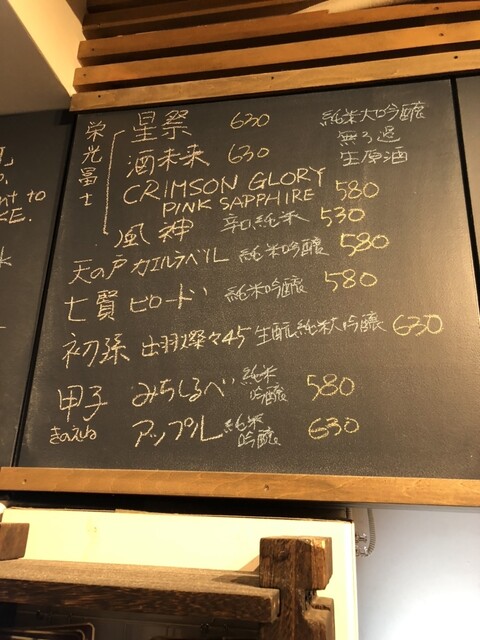 栄光冨士
星祭 630 純米大吟醸
無ろ過
酒未来 630 生原酒
CRIMSON GLORY
PINK SAPPHIRE 580
風神 辛口純米 530
天の戸 カエルラベル 純米吟醸 580
七賢 ビロード 純米吟醸 580
初孫 出羽燦々45 生酛純米大吟醸 630
甲子 みちしるべ 純米吟醸 580
きのえね アップル 純米吟醸 630
nt to
KE.